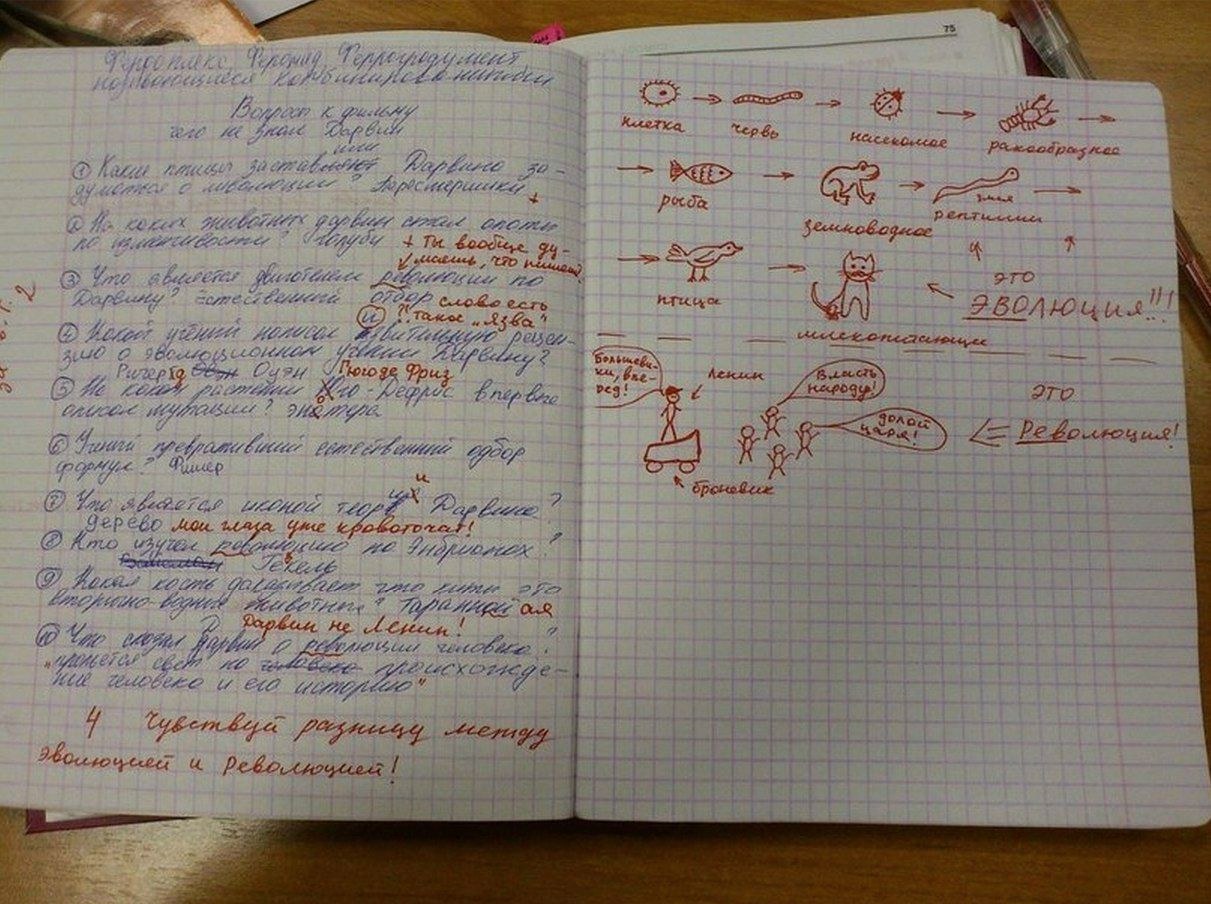 Ферродплекс Феромид Феррогродумент
Вопросы к фильму
чего не знал Дарвин
или
① Какие птицы заставляют Дарвина за-
думаться о иволюции? Заместершики +
② На каких животных дарвин ставил опыты
по изменчивости? голуби + Ты вообще ду-
маешь, что пишешь?
③ Что является двигателем революции по
Дарвину? естественный отбор слово есть
такое „язва"
④ Какой учёный написал язвительную рецен-
зию о эволюционном учении Дарвину?
Ричард Оуэн Гюгоде Фриз
⑤ На каком растении Юго-Дефриз впервые
описал мутации? энотера
⑥ Учёный превративший естественный одбор
формулу? Фишер
⑦ Что является иконой теории Дарвина?
дерево мои глаза уже кровоточат!
⑧ Кто изучал революцию по Энбрионах?
Геккель
⑨ Какая кость доказывает что киты это
вторично-водные животные? Таранной ая
Дарвин не Ленин!
⑩ Что сказал Дарвин о революции человека?
„прольется свет на человека происхожде-
ние человека и его историю"
4 Чувствуй разницу между
эволюцией и Революцией!
75
клетка червь насекомое ракообразное
рыба земноводное змия рептилии
птица млекопитающие
это
ЭВОЛЮЦИЯ!!!
Большеви-
ки, впе-
ред!
Ленин
Власть
народу!
долой
царя!
броневик
это
Революция!